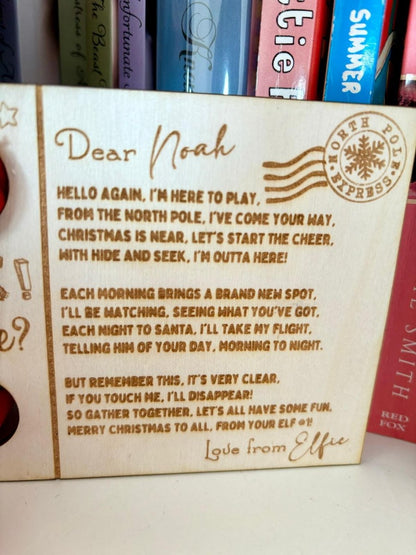 The Beast
Mistress of
Unfortunate
stie
SUMMER
NORTH POLE
EXPRESS
Dear Noah
HELLO AGAIN, I'M HERE TO PLAY,
FROM THE NORTH POLE, I'VE COME YOUR WAY,
CHRISTMAS IS NEAR, LET'S START THE CHEER,
WITH HIDE AND SEEK, I'M OUTTA HERE!
EACH MORNING BRINGS A BRAND NEW SPOT,
I'LL BE WATCHING, SEEING WHAT YOU'VE GOT,
EACH NIGHT TO SANTA, I'LL TAKE MY FLIGHT,
TELLING HIM OF YOUR DAY, MORNING TO NIGHT.
BUT REMEMBER THIS, IT'S VERY CLEAR,
IF YOU TOUCH ME, I'LL DISAPPEAR!
SO GATHER TOGETHER, LET'S ALL HAVE SOME FUN,
MERRY CHRISTMAS TO ALL, FROM YOUR ELF #1!
Love from Elfie
!
e?
SMITH
RED
FOX